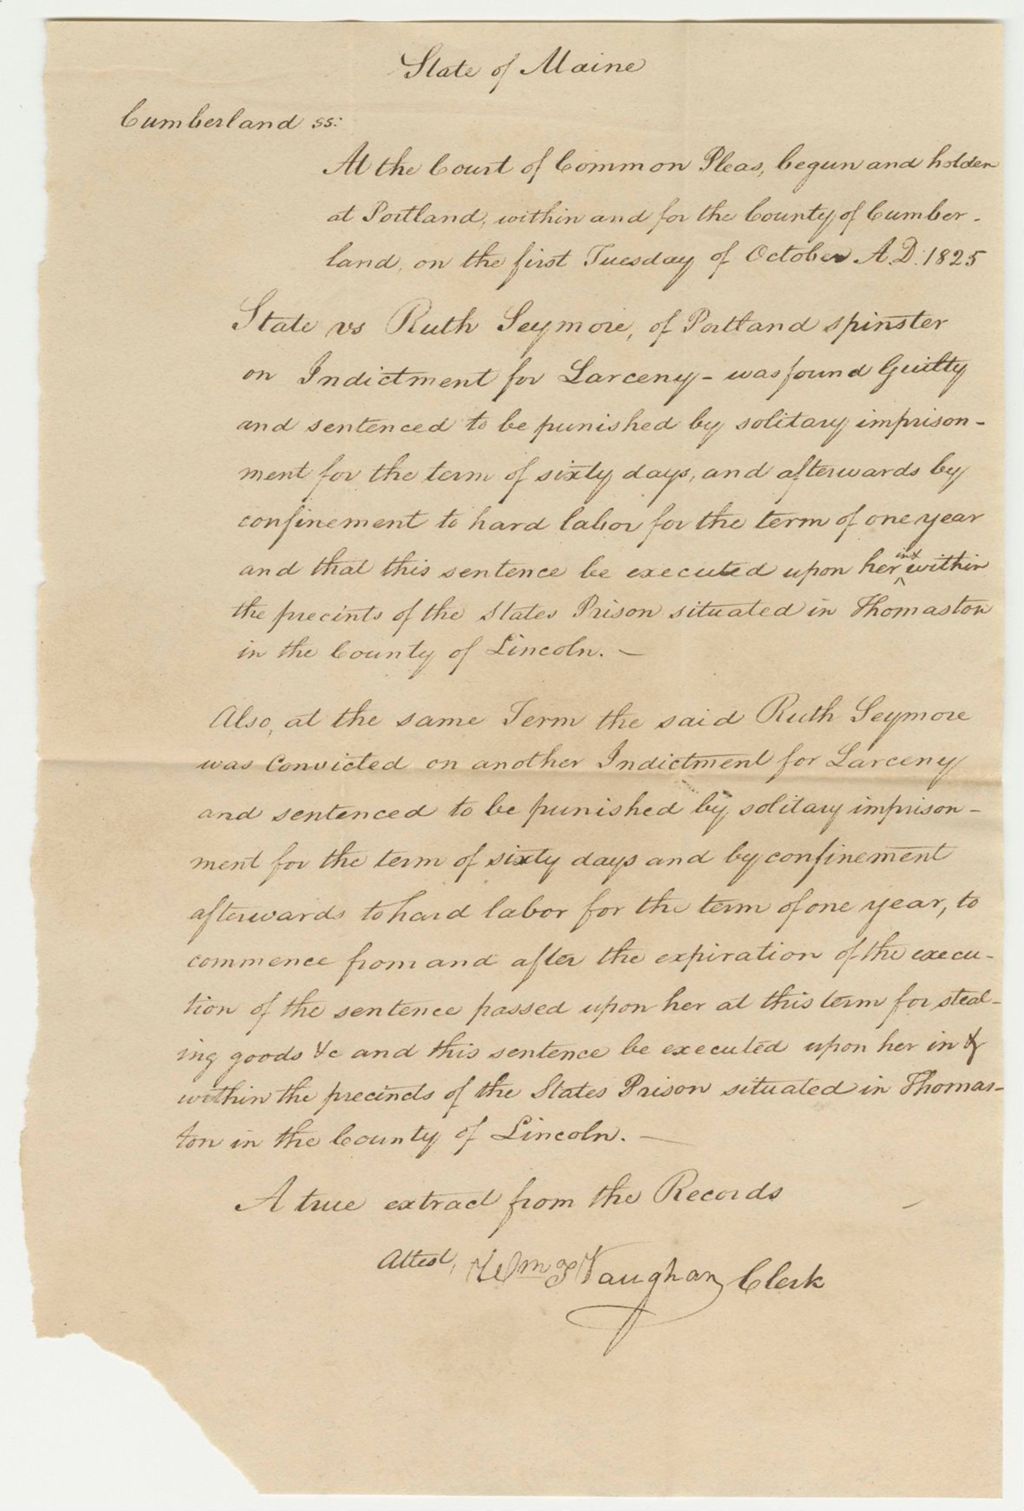 State of Maine
Cumberland ss:
At the Court of Common Pleas, begun and holden
at Portland, within and for the County of Cumber-
land, on the first Tuesday of October A.D. 1825
State vs Ruth Seymore, of Portland spinster
on Indictment for Larceny - was found Guilty
and sentenced to be punished by solitary imprison-
ment for the term of sixty days, and afterwards by
confinement to hard labor for the term of one year
and that this sentence be executed upon her in & within
the precints of the States Prison situated in Thomaston
in the County of Lincoln. -
Also, at the same Term the said Ruth Seymore
was convicted on another Indictment for Larceny
and sentenced to be punished by solitary imprison-
ment for the term of sixty days and by confinement
afterwards to hard labor for the term of one year, to
commence from and after the expiration of the execu-
tion of the sentence passed upon her at this term for steal-
ing goods &c and this sentence be executed upon her in &
within the precincts of the States Prison situated in Thomas-
ton in the County of Lincoln. -
A true extract from the Records
Attest, Wm P Vaughan Clerk